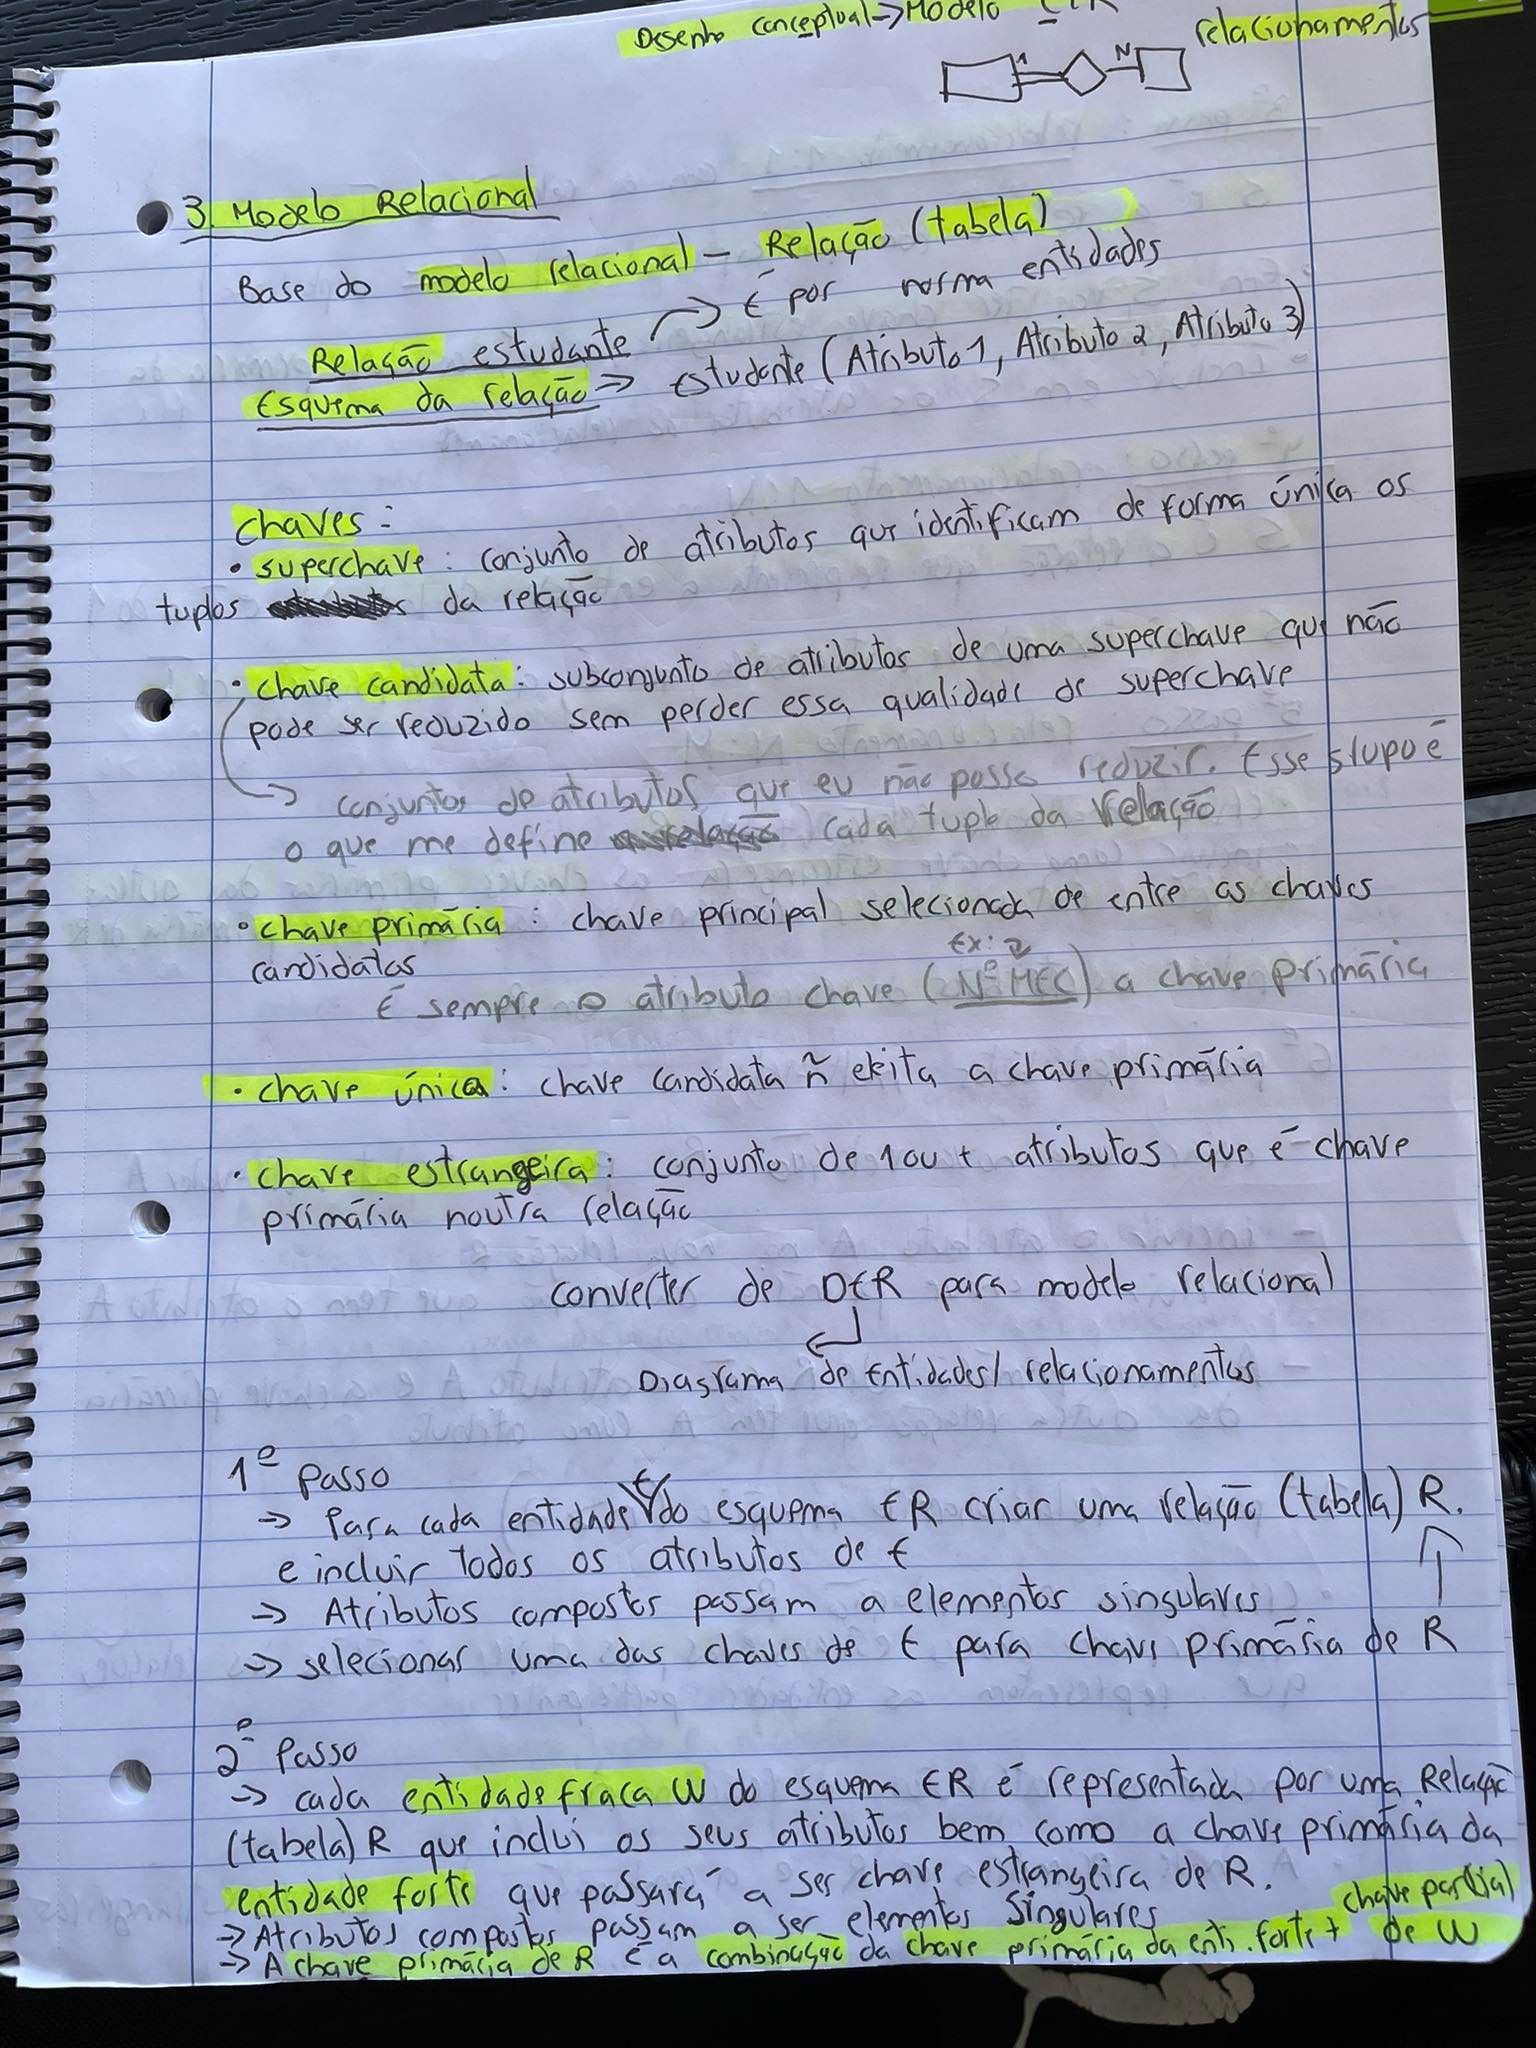 Desenho conceptual -> Modelo
relacionamentos
1 N
3. Modelo Relacional
Base do modelo relacional - Relação (tabela)
É por norma entidades
Relação estudante
Esquema da relação => Estudante (Atributo 1, Atributo 2, Atributo 3)
Chaves:
• superchave: conjunto de atributos que identificam de forma única os
tuplos da relação
• chave candidata: subconjunto de atributos de uma superchave que não
pode ser reduzido sem perder essa qualidade de superchave
-> conjuntos de atributos que eu não posso reduzir. Esse grupo é
o que me define cada tuplo da relação
• chave primária: chave principal selecionada de entre as chaves
candidatas
Ex:
É sempre o atributo chave (Nº MEC) a chave primária
• chave única: chave candidata ñ eleita a chave primária
• chave estrangeira: conjunto de 1 ou + atributos que é chave
primária noutra relação
converter de DER para modelo relacional
Diagrama de Entidades/relacionamentos
1º Passo
-> Para cada entidade E do esquema ER criar uma relação (tabela) R.
e incluir todos os atributos de E
-> Atributos compostos passam a elementos singulares
-> selecionar uma das chaves de E para chave primária de R
2º Passo
-> cada entidade fraca W do esquema ER é representada por uma Relação
(tabela) R que inclui os seus atributos bem como a chave primária da
entidade forte que passará a ser chave estrangeira de R.
-> Atributos compostos passam a ser elementos singulares
-> A chave primária de R é a combinação da chave primária da enti. forte + chave parcial de W